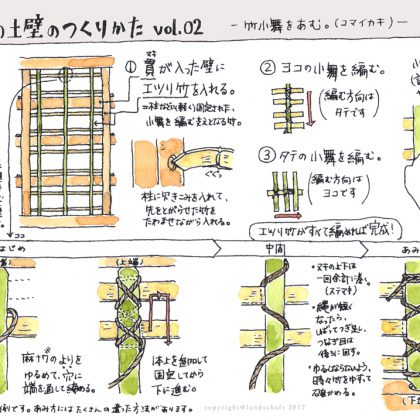 の土壁のつくりかた vol.02
- 竹小舞をあむ。(コマイカキ) -
① 貫が入った壁に
ヌキ
エツリ竹を入れる。
＝柱などに軽く固定された、
小舞を編むまえとなる竹。
ぐぐっ
柱に欠きこみを入れて、
先をとがらせた竹を
たわませながら入れる。
ヨコ
② ヨコの小舞を編む。
(編む方向は
タテです)
③ タテの小舞を編む。
(編む方向は
ヨコです)
エツリ竹がすべて編めれば完成!
はじめ
中間
あみ
(上端)
麻ヤワのよりを
ゆるめて、穴に
端を通して締める。
体上を無加して
固定してから
下に進む。
・ヌキの上下は
一回余計に巻く。
(ステマキ)
・縄が短く
なったら、
しばってつぎ足し、
つなぎ目は
後ろに回す。
・ゆるくならないよう、
時々竹をゆすって
確かめる。
(下
例です。あみ方にはたくさんの違った方法があります。
copyright@landschaft 2017